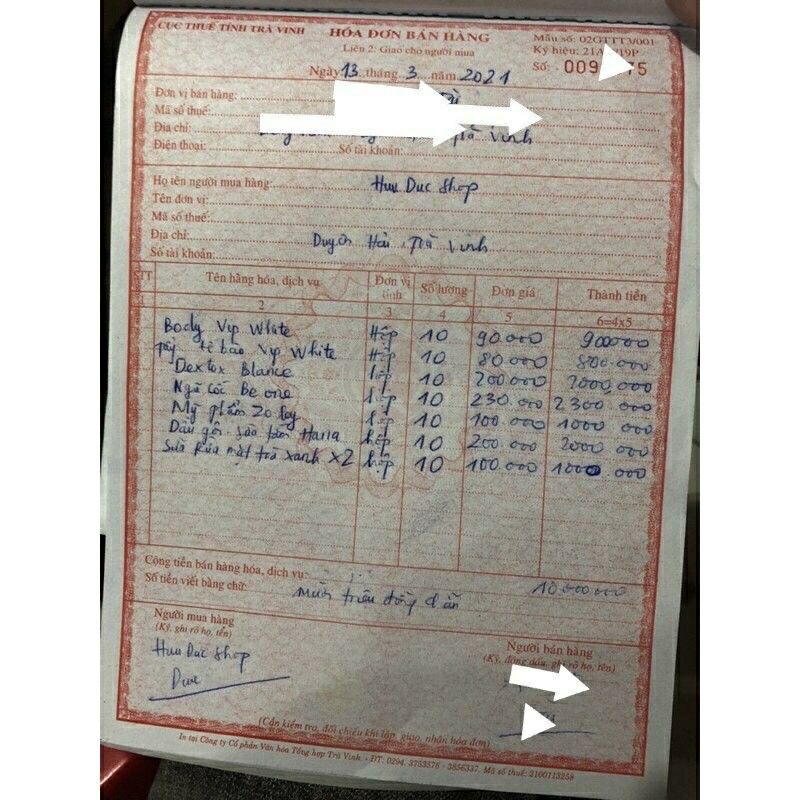 CỤC THUẾ TỈNH TRÀ VINH
HÓA ĐƠN BÁN HÀNG
Liên 2: Giao cho người mua
Mẫu số: 02GTTT3/001
Ký hiệu: 21A 19P
Số: 009 75
Ngày 13 tháng 3 năm 2021
Đơn vị bán hàng:
Mã số thuế:
Địa chỉ: Trà Vinh
Điện thoại: Số tài khoản:
Họ tên người mua hàng: Huu Duc Shop
Tên đơn vị:
Mã số thuế:
Địa chỉ: Duyên Hải, Trà Vinh
Số tài khoản:
STT Tên hàng hóa, dịch vụ Đơn vị tính Số lượng Đơn giá Thành tiền
1 2 3 4 5 6=4x5
Body Vip White Hộp 10 90.000 900000
tẩy tế bào Vip White Hộp 10 80.000 800.000
Dextox Blance hộp 10 200.000 2000,000
Ngũ cốc Be one hộp 10 230.000 2300.000
Mỹ phẩm Zo hộp 10 100.000 1000 000
Dầu gội Hana hộp 10 200.000 2000 000
Sữa Rửa mặt trà xanh X2 hộp 10 100.000 1000 000
Cộng tiền bán hàng hóa, dịch vụ: 10.000000
Số tiền viết bằng chữ: mười triệu đồng chẵn
Người mua hàng
(Ký, ghi rõ họ, tên)
Huu Duc Shop
Duc
Người bán hàng
(Ký, đóng dấu, ghi rõ họ, tên)
(Cần kiểm tra, đối chiếu khi lập, giao, nhận hóa đơn)
In tại Công ty Cổ phần Văn hóa Tổng hợp Trà Vinh - ĐT: 0294. 3753376 - 3856337. Mã số thuế: 2100113258